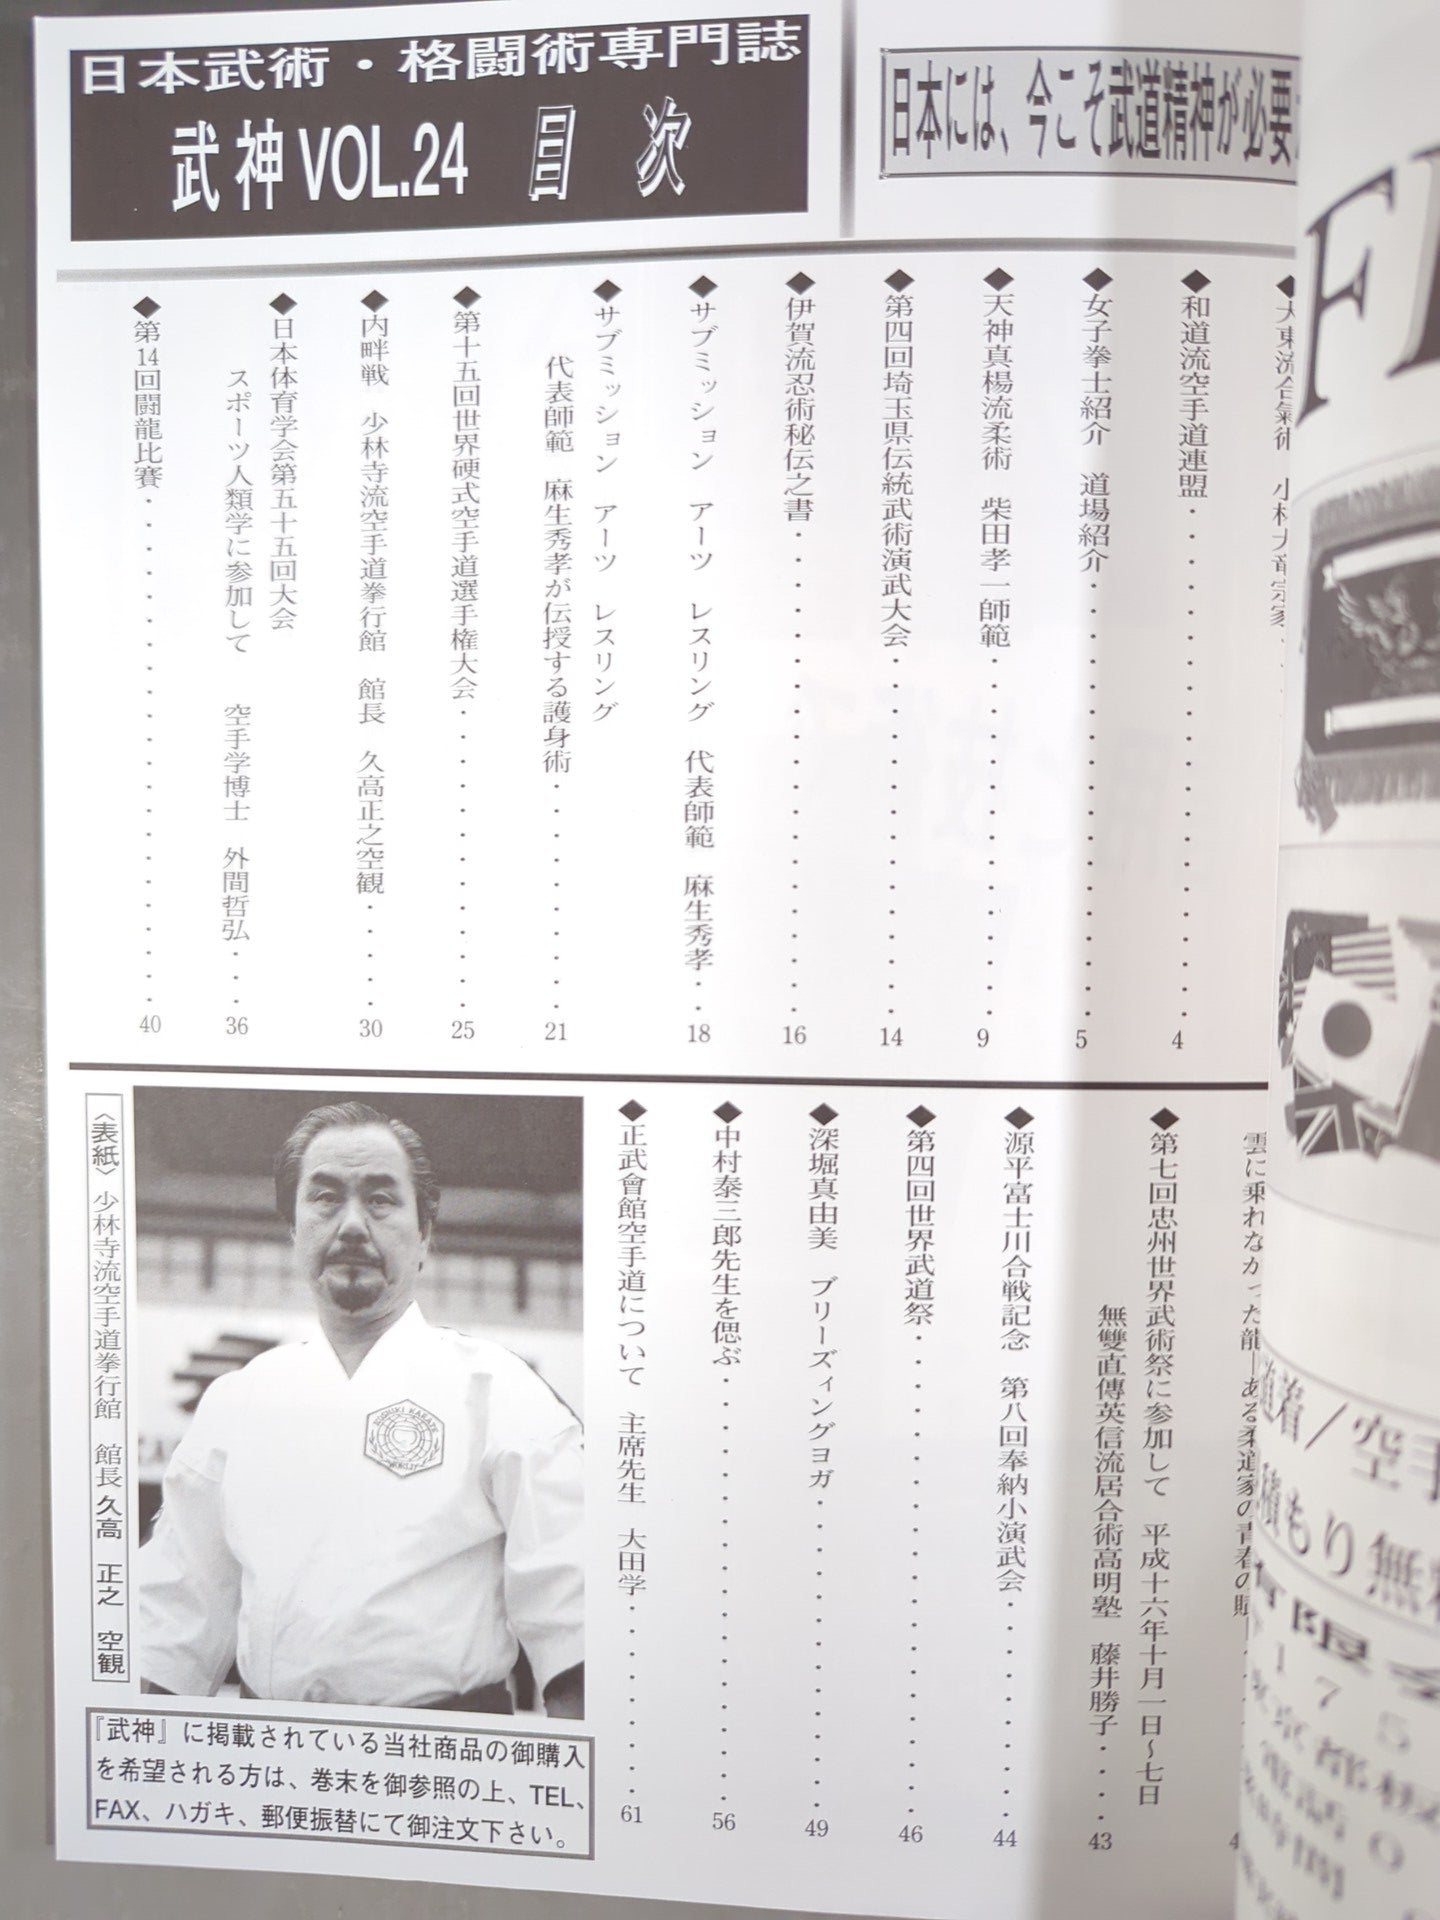 日本武術・格闘術専門誌
武神VOL.24 目次
日本には、今こそ武道精神が必要
◆大東流合氣術 小林大竜宗家・・
◆和道流空手道連盟・・・・・・・・・・・・・・・・・・・・・4
◆女子拳士紹介 道場紹介・・・・・・・・・・・・・・・・・・5
◆天神真楊流柔術 柴田孝一師範・・・・・・・・・・・・・・・9
◆第四回埼玉県伝統武術演武大会・・・・・・・・・・・・・・・14
◆伊賀流忍術秘伝之書・・・・・・・・・・・・・・・・・・・・16
◆サブミッション アーツ レスリング 代表師範 麻生秀孝・・18
◆サブミッション アーツ レスリング
代表師範 麻生秀孝が伝授する護身術・・・・・・・・・・21
◆第十五回世界硬式空手道選手権大会・・・・・・・・・・・・・25
◆内畔戦 少林寺流空手道拳行館 館長 久高正之空観・・・・・30
◆日本体育学会第五十五回大会
スポーツ人類学に参加して 空手学博士 外間哲弘・・・36
◆第14回闘龍比賽・・・・・・・・・・・・・・・・・・・・・・40
雲に乗れなかった龍―ある柔道家の青春の賦―・・・4
◆第七回忠州世界武術祭に参加して 平成十六年十月一日～七日
無雙直傳英信流居合術高明塾 藤井勝子・・・・43
◆源平富士川合戦記念 第八回奉納小演武会・・・・・・・・・44
◆第四回世界武道祭・・・・・・・・・・・・・・・・・・・・46
◆深堀真由美 ブリーズィングヨガ・・・・・・・・・・・・・49
◆中村泰三郎先生を偲ぶ・・・・・・・・・・・・・・・・・・56
◆正武會館空手道について 主席先生 大田学・・・・・・・・61
〈表紙〉少林寺流空手道拳行館 館長 久高 正之 空観
『武神』に掲載されている当社商品の御購入
を希望される方は、巻末を御参照の上、TEL、
FAX、ハガキ、郵便振替にて御注文下さい。
F
着／空手
積もり無料
有限会
175